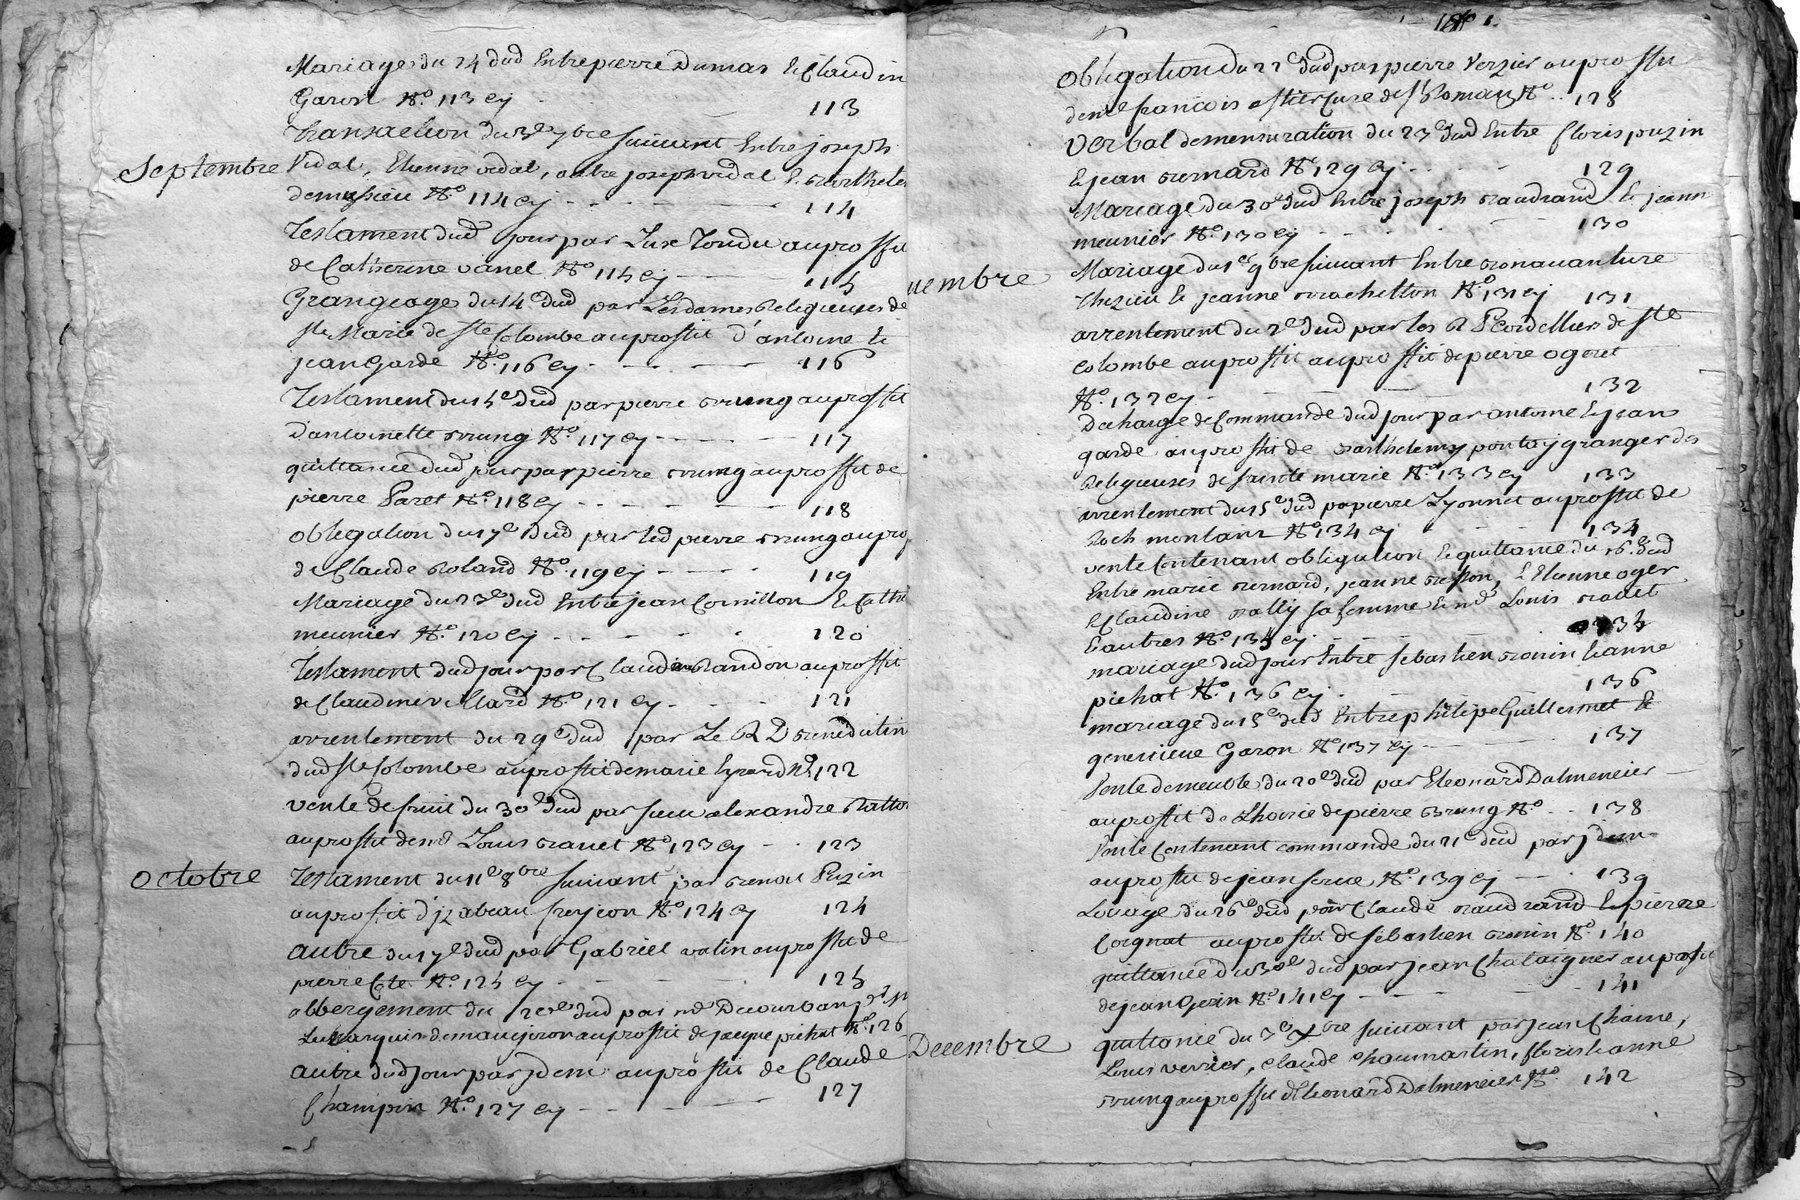 Mariage du 24 dud Entre pierre Dumas & Claudin
Garon N.º 113 cy 113
transaction du 3e 7bre suivant Entre joseph
Septembre Vidal, Etienne vidal, autre joseph vidal &
N.º 114 cy - - - - 114
Testament dud jour par Luc Tondu au proffit
de Catherine vanel N.º 115 cy - - 115
Grangeage du 14e dud par Les dames Religieuses de
ste Marie de ste Colombe au proffit d'antoine &
jean Garde N.º 116 cy - - - - 116
Testament du 15e dud par pierre brung au proffit
d'antoinette brung N.º 117 cy - - - - 117
quittance dud jour par pierre brung au proffit de
pierre Paret N.º 118 cy - - - - 118
obligation du 17e dud par led pierre brung au prof
de Claude Roland N.º 119 cy - - - - 119
Mariage du 23e dud Entre jean Cornillon & Cathe
meunier N.º 120 cy - - - - 120
Testament dud jour par Claudine Randon au proffit
de Claudine villard N.º 121 cy - - - 121
arrentement du 29e dud par Le R P benedictin
dud ste Colombe au proffit de marie Eyrard N.º 122
vente de fruit du 30e dud par sieur alexandre
au proffit de mr Louis N.º 123 cy - - 123
Octobre Testament du 11e 8bre suivant par benoit Puzin
au proffit d'izabeau N.º 124 cy 124
autre du 17e dud par Gabriel valin au proffit de
pierre N.º 125 cy - - - - 125
albergement du dud par mr
Le Marquis de maugiron au proffit de jacque pichat N.º 126
autre dud jour par jdem au proffit de Claude
Champin N.º 127 cy - - - - 127
obligation du 22e dud par pierre Verzier au proffit
de mre francois cure de st Roman N.º 128
Verbal de mensuration du 23e dud Entre floris puzin
& jean bernard N.º 129 cy - - - - 129
Mariage du 30e dud Entre joseph baudrand & jeanne
meunier N.º 130 cy - - - - 130
vembre Mariage du 1er 9bre suivant Entre bonavanture
thizieu & jeanne brochetton N.º 131 cy 131
arrentement du 2e dud par les R P Cordelliers de ste
Colombe au proffit au proffit de pierre ogeret
N.º 132 cy - - - - 132
decharge de Commande dud jour par antoine & jean
garde au proffit de barthelemy granger des
Religieuses de sainte marie N.º 133 cy 133
arrentement du 15e dud par pierre Lyonnet au proffit de
Roch montant N.º 134 cy - - - - 134
vente Contenant obligation & quittance du 16e dud
Entre marie bernard, jeanne & Etienne oger
& Claudine sa femme & mr Louis
& autres N.º 135 cy 135
mariage dud jour Entre sebastien bonin & anne
pichat N.º 136 cy - - 136
mariage du 18e dud Entre philipe Guillermet &
genevieve Garon N.º 137 cy - - - - 137
vente de meuble du 20e dud par Eleonard Dalmeneier
au proffit de L'hoirie de pierre brung N.º - 138
vente Contenant commande du 21e dud par jdem
au proffit de jean N.º 139 cy - - 139
Louage du 26e dud par Claude baudrand & pierre
Coignat au proffit de sebastien bonin N.º 140
quittance du 30e dud par jean Chataignier au profit
de jean Gerin N.º 141 cy - - - - 141
Decembre quittance du 3e Xbre suivant par jean Chaine,
Louis verrier, Claude Chaumartin, floris & anne
brung au proffit d'Eleonard Dalmeneier N.º 142